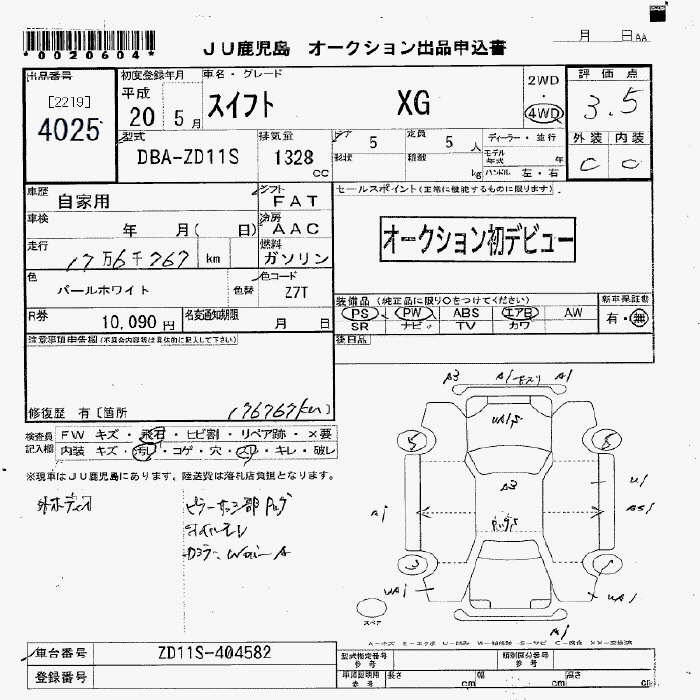 *0020604*
ＪＵ鹿児島 オークション出品申込書
月 日 AA
出品番号
[2219]
4025
初度登録年月
平成
20 5 月
車名・グレード
スイフト XG
2WD
4WD
評価点
3.5
外装 内装
C C
型式
DBA-ZD11S
排気量
1328 cc
ドア 5
形状
定員 5 人
積載 kg
ディーラー・並行
モデル年式 年
ハンドル 左・右
車歴
自家用
シフト
FAT
車検
年 月( 日)
冷房
AAC
走行
17万6千767 km
燃料
ガソリン
色
パールホワイト
色替
色コード
Z7T
R券
10,090 円
名変通知期限
月 日
セールスポイント(正常に機能するものに限ります)
オークション初デビュー
装備品 (純正品に限り○をつけてください)
PS PW ABS エアB AW
SR ナビ TV カワ
新車保証書
有・無
後日品
注意事項申告欄(不具合内容等は具体的に記入して下さい)
修復歴 有〔箇所
176767km)
検査員記入欄
FW キズ・飛石・ヒビ割・リペア跡・×要
内装 キズ・汚レ・コゲ・穴・スリ・キレ・破レ
※現車はＪＵ鹿児島にあります。陸送費は落札店負担となります。
A3 A1 A1
A3
U1
スペア
車台番号
ZD11S-404582
登録番号
型式指定番号
参考
類別区分番号
参考
車両証明用
参考
長さ cm
幅 cm
高さ cm